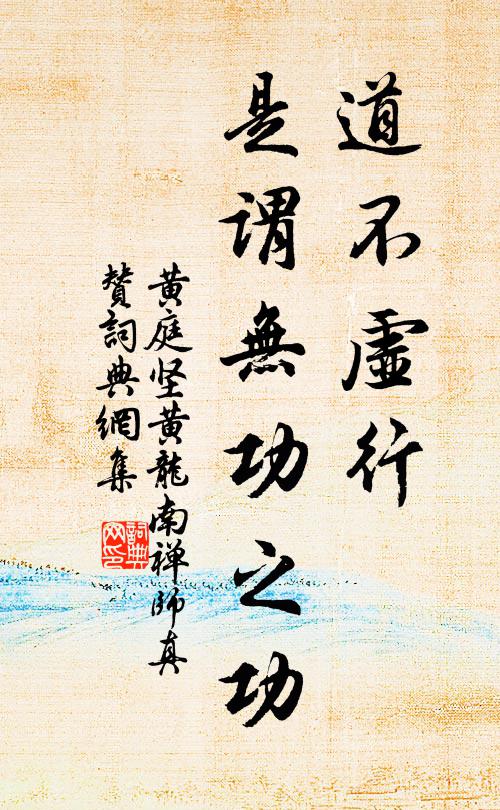 道不虛行
是謂無功之功
黄庭坚黄龍南禅師真
贊詞典網集
詞典
网印